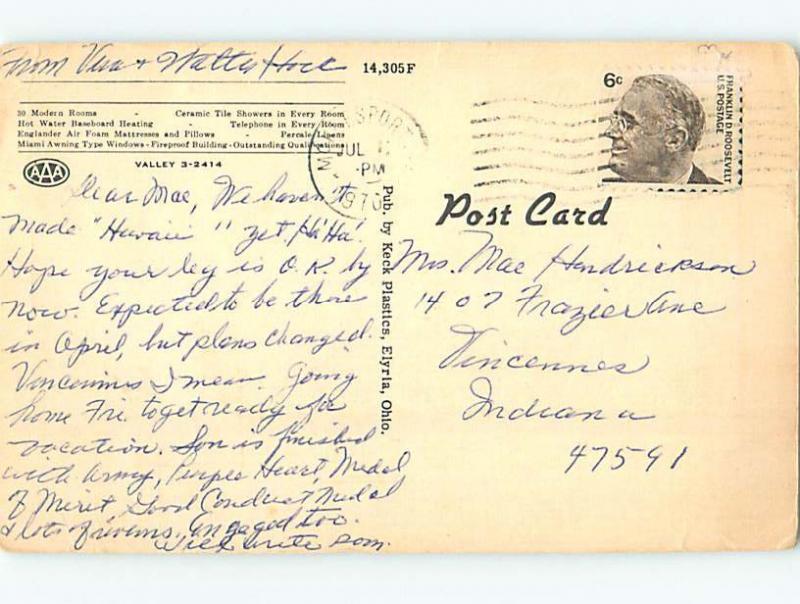 From Vera + Walter Hock
14,305F
30 Modern Rooms - Ceramic Tile Showers in Every Room
Hot Water Baseboard Heating - Telephone in Every Room
Englander Air Foam Mattresses and Pillows - Percale Linens
Miami Awning Type Windows - Fireproof Building - Outstanding Qualifications
AAA
VALLEY 3-2414
JUL
PM
1970
6c
FRANKLIN D. ROOSEVELT
U.S. POSTAGE
Dear Mae, We haven't
made "Hawaii" yet. Ha Ha!
Hope your leg is O.K. by
now. Expected to be there
in April, but plans changed.
Vincennes I mean. Going
home Fri. to get ready for
vacation. Son is finished
with Army, Purple Heart, Medal
of Merit, Good Conduct Medal
& lots of Engaged too.
Will write soon.
Pub. by Keck Plastics, Elyria, Ohio.
Post Card
Mrs. Mae Hendrickson
1407 Frazier Ave
Vincennes
Indiana
47591